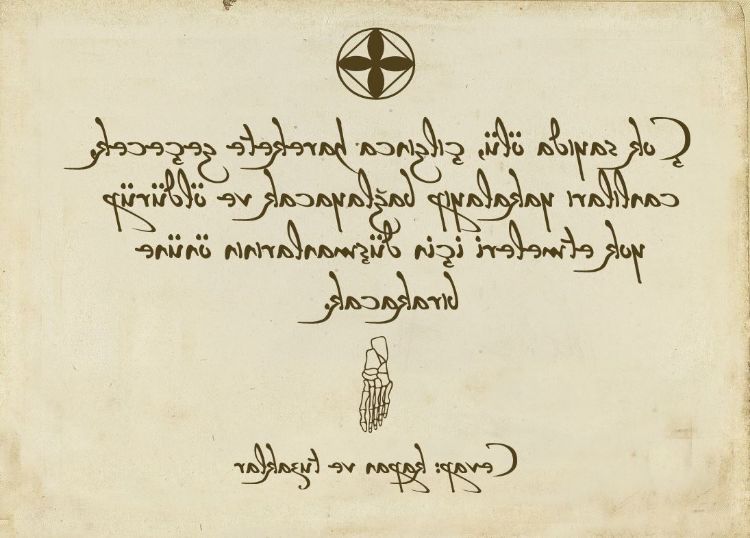 Çok sayıda ölü, çılgınca harekete geçecek,
canlıları yakalayıp bağlayacak ve öldürüp
yok etmeleri için düşmanlarının önüne
bırakacak.
Cevap: kapan ve tuzaklar